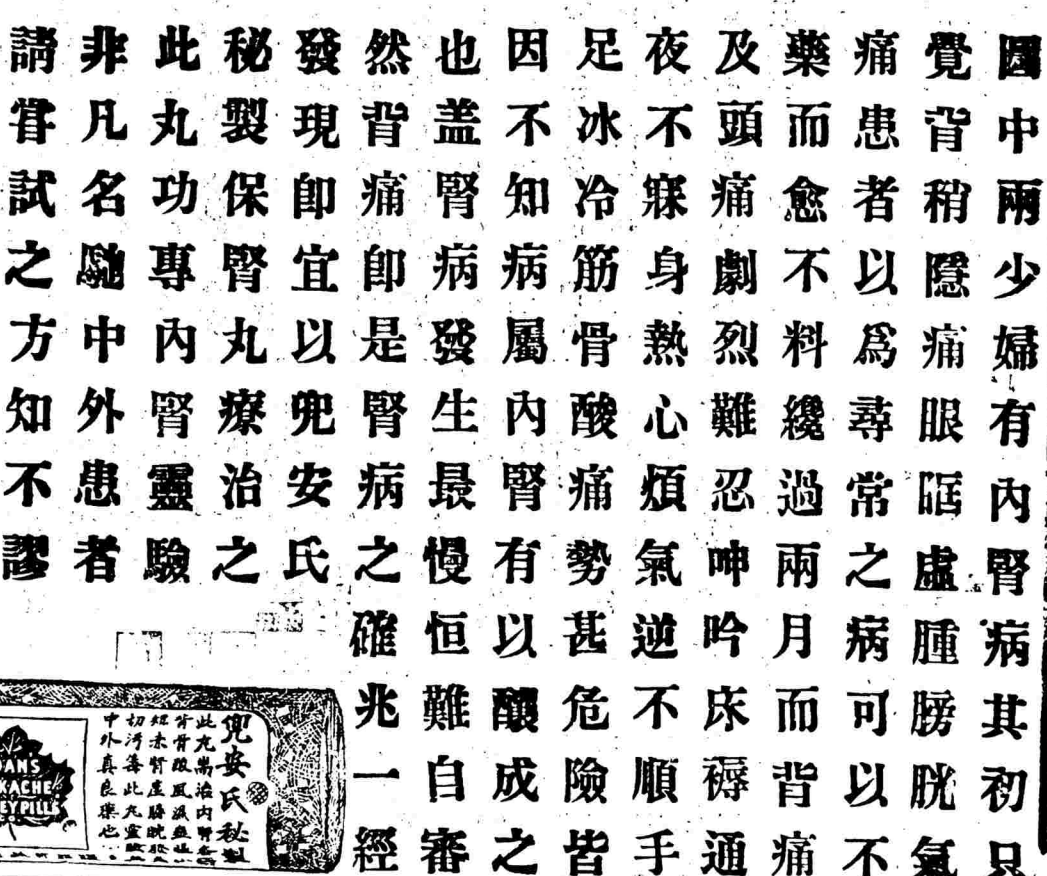 圖中兩少婦有內腎病其初只
覺背稍隱痛眼眶虛腫膀胱氣
痛患者以爲尋常之病可以不
藥而愈不料纔過兩月而背痛
及頭痛劇烈難忍呻吟床褥通
夜不寐身熱心煩氣逆不順手
足冰冷筋骨酸痛勢甚危險皆
因不知病屬內腎有以釀成之
也盖腎病發生最慢恒難自審
然背痛卽是腎病之確兆一經
發現卽宜以兜安氏
秘製保腎丸療治之
此丸功專內腎靈驗
非凡名馳中外患者
請甞試之方知不謬
兜安氏秘製
此丸耑治內腎
背骨酸風濕
此丸靈
中外真良藥也
ANS
KACHE
EY PILLS